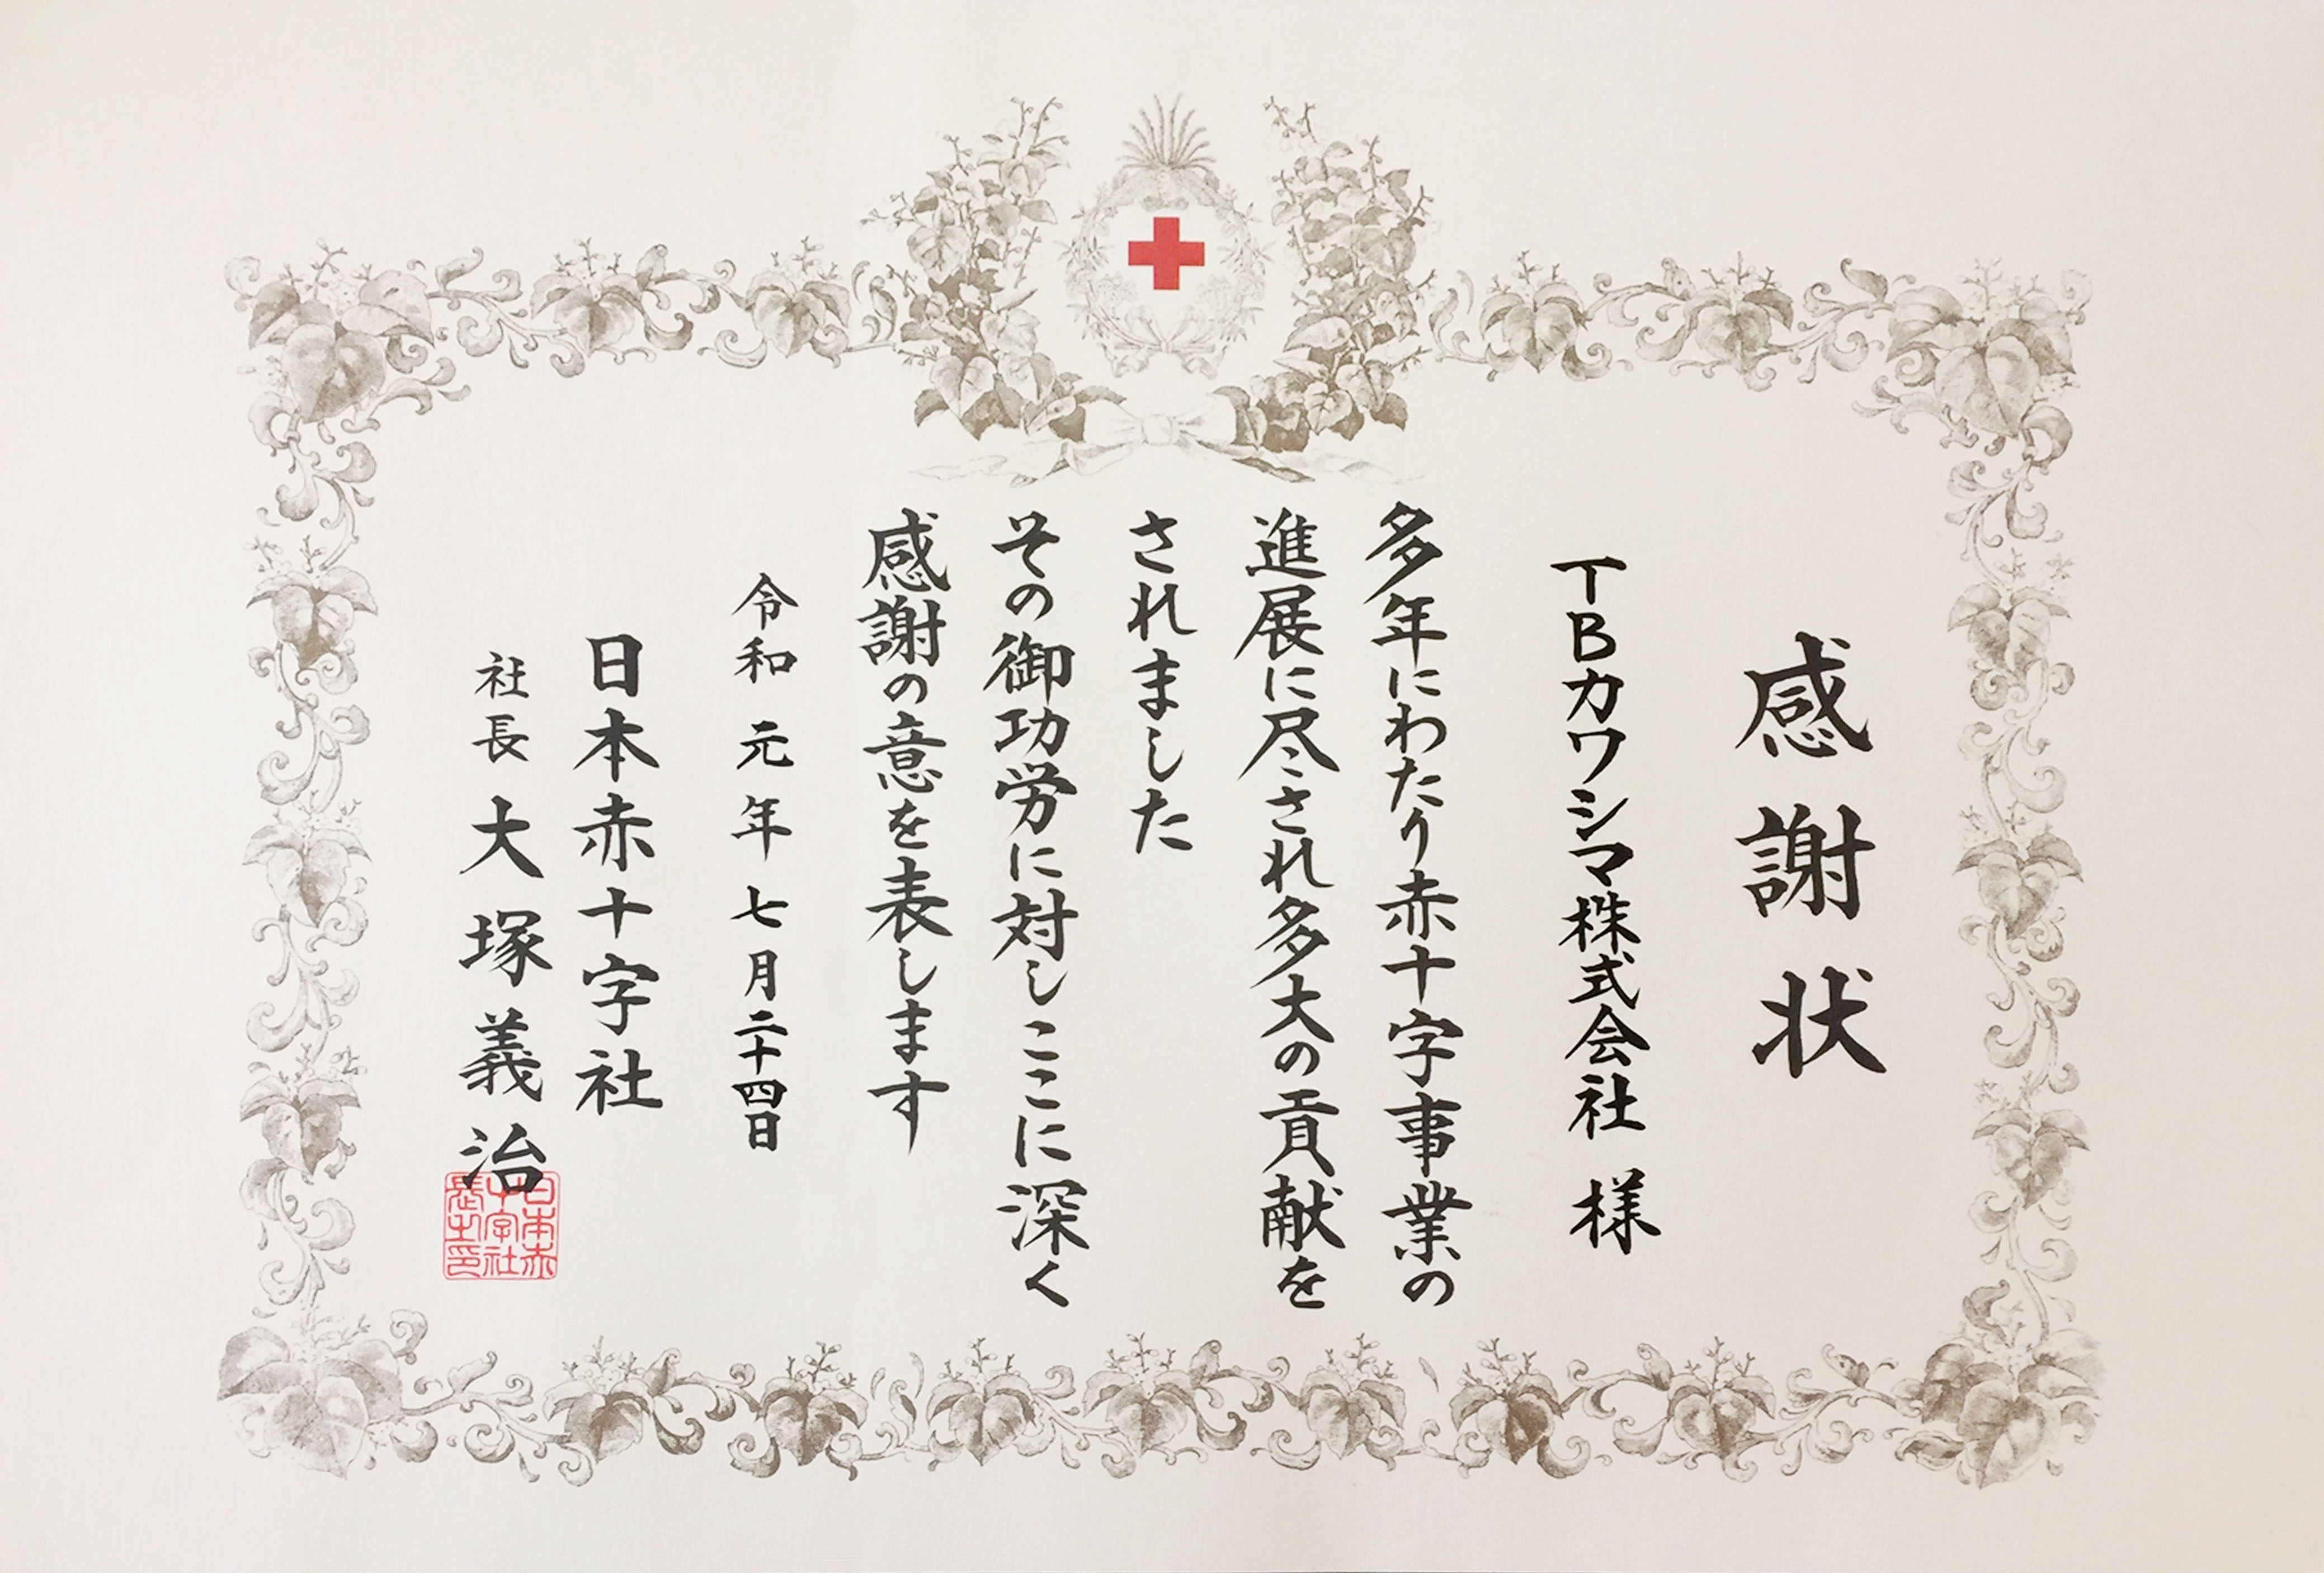 感謝状
TBカワシマ株式会社 様
多年にわたり赤十字事業の
進展に尽され多大の貢献を
されました
その御功労に対しここに深く
感謝の意を表します
令和元年七月二十四日
日本赤十字社
社長 大塚義治
日本赤
十字社
長之印